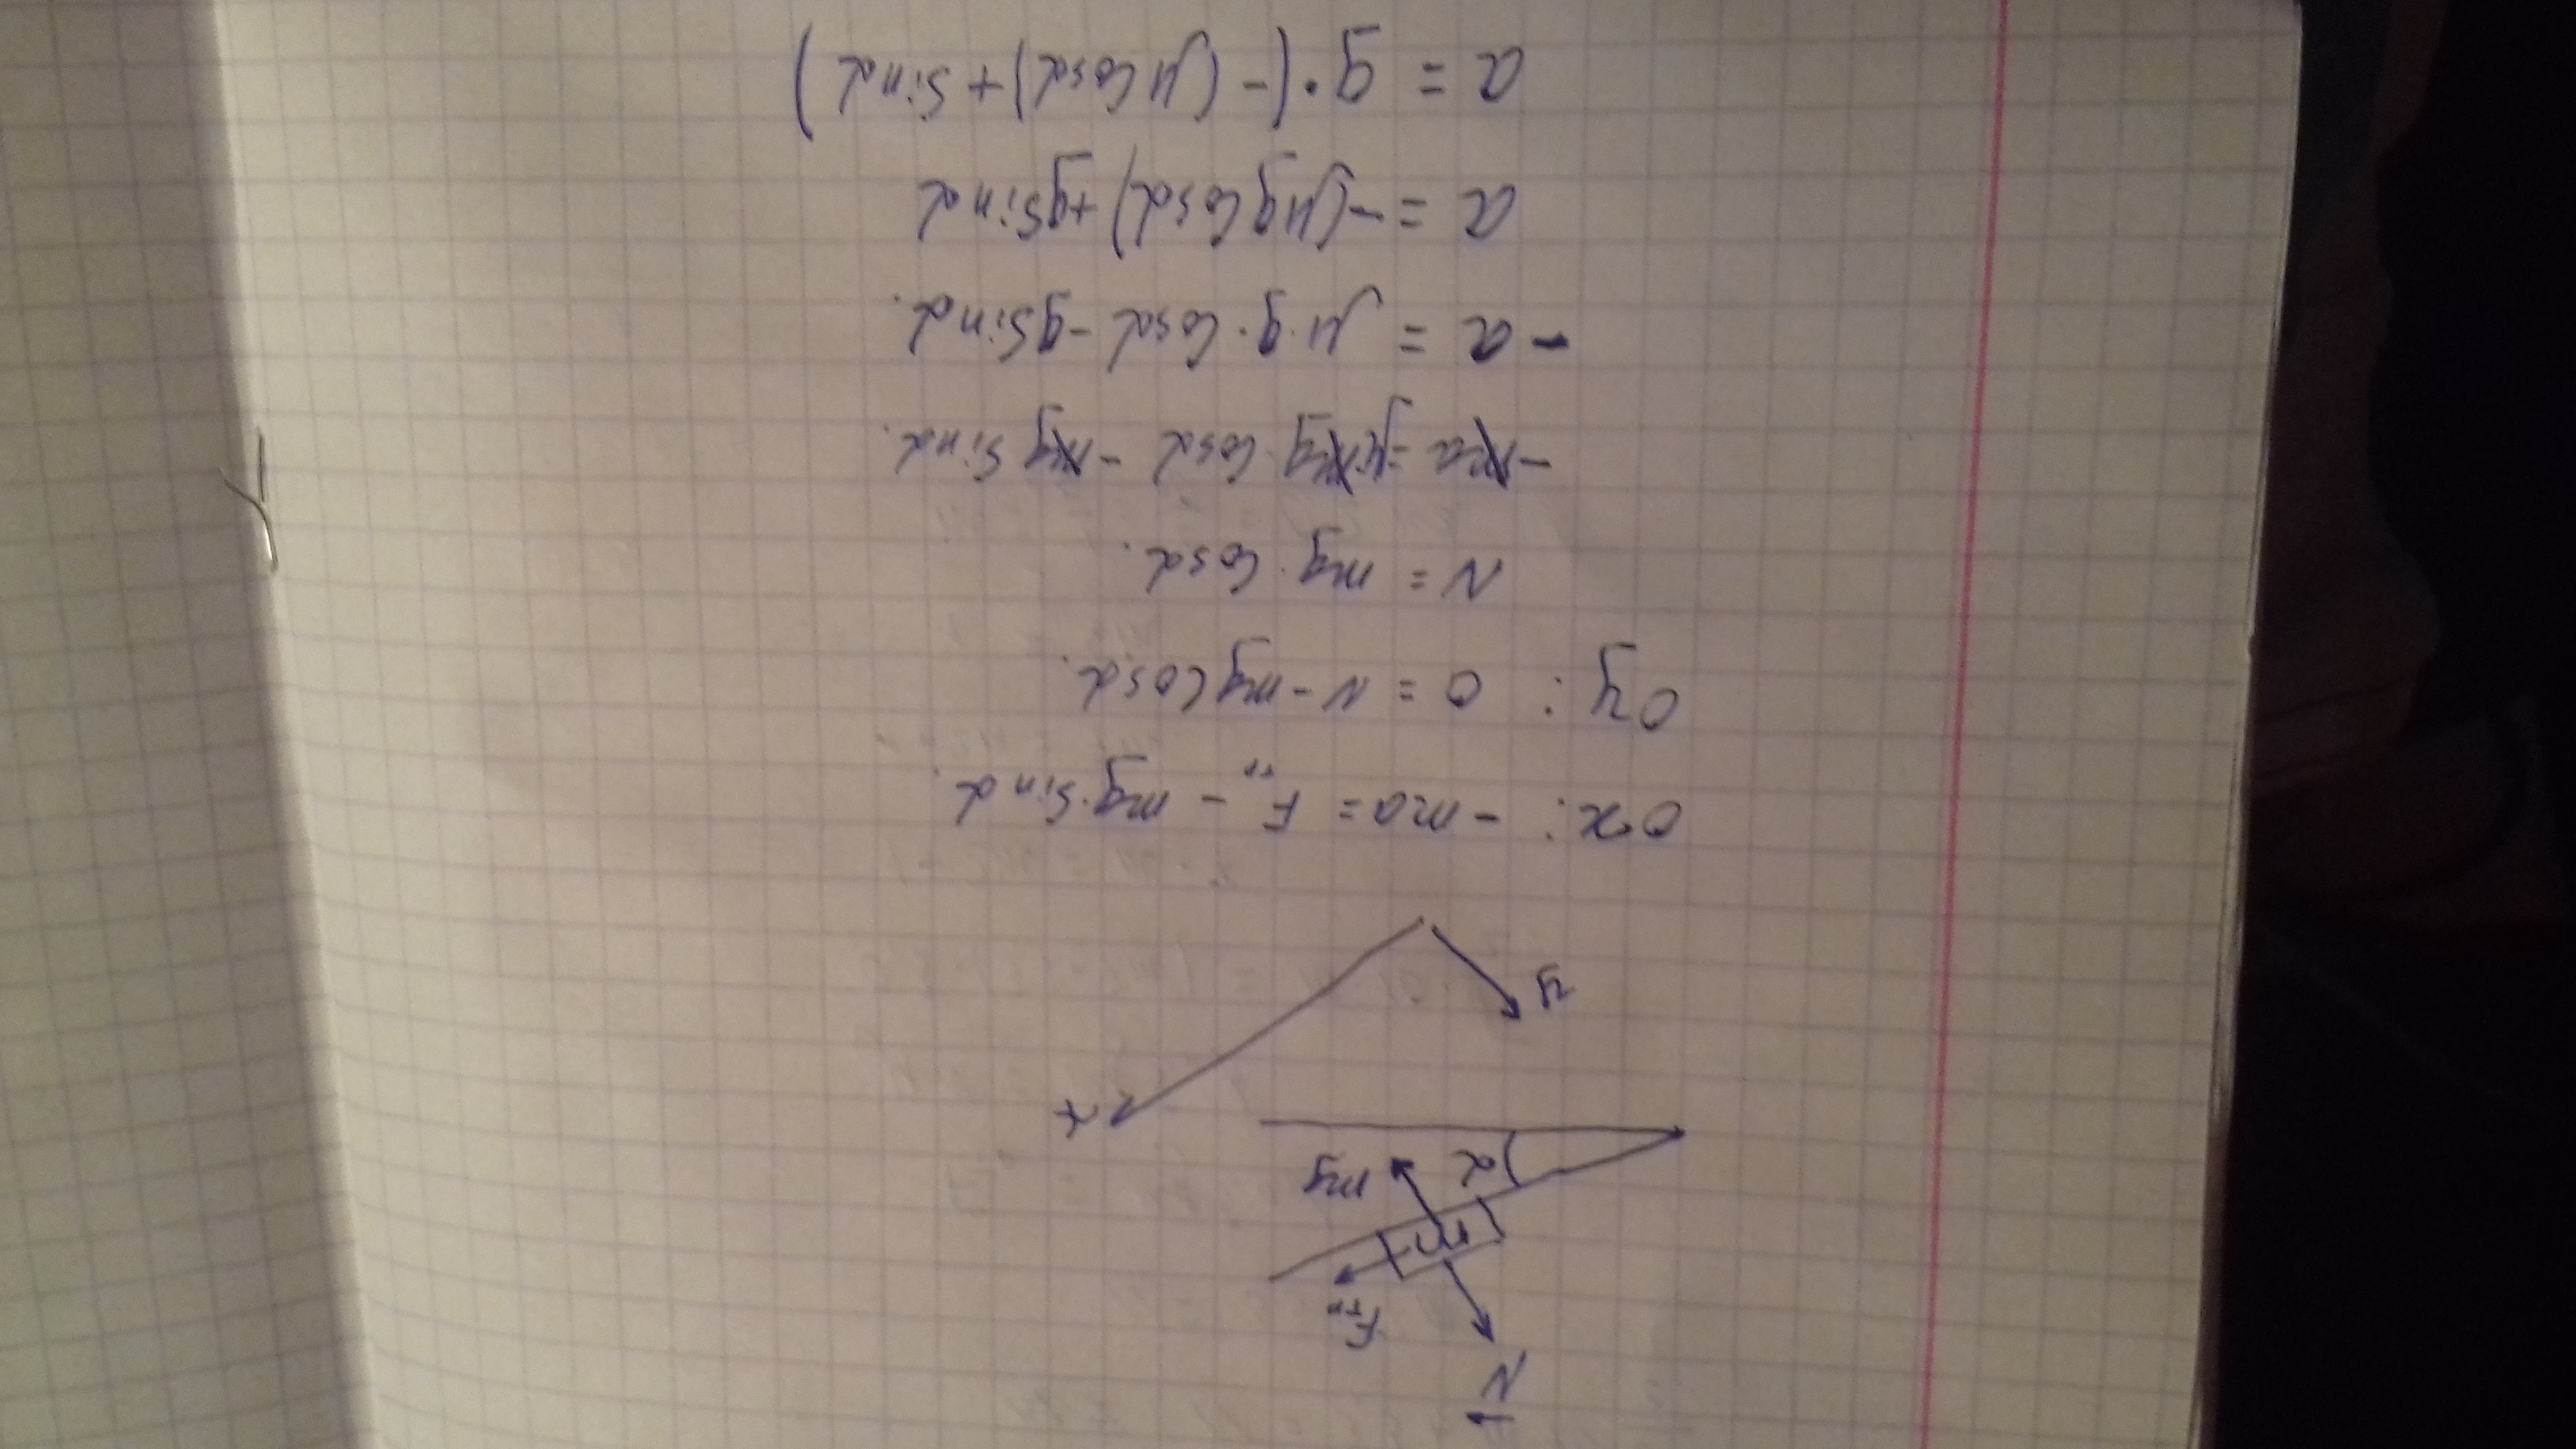 N
Fтр
m
mg
α
y
x
ox: -ma = Fтр - mg·sinα.
oy: 0 = N - mg cosα.
N = mg·cosα.
-ma = μ·mg·cosα - mg sinα.
-a = μ·g·cosα - g sinα.
a = -(μg cosα) + g sinα
a = g·(-(μ cosα) + sinα)